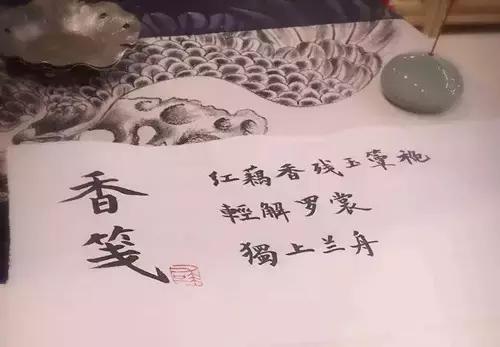 香笺
红藕香残玉簟
輕解罗裳
獨上兰舟